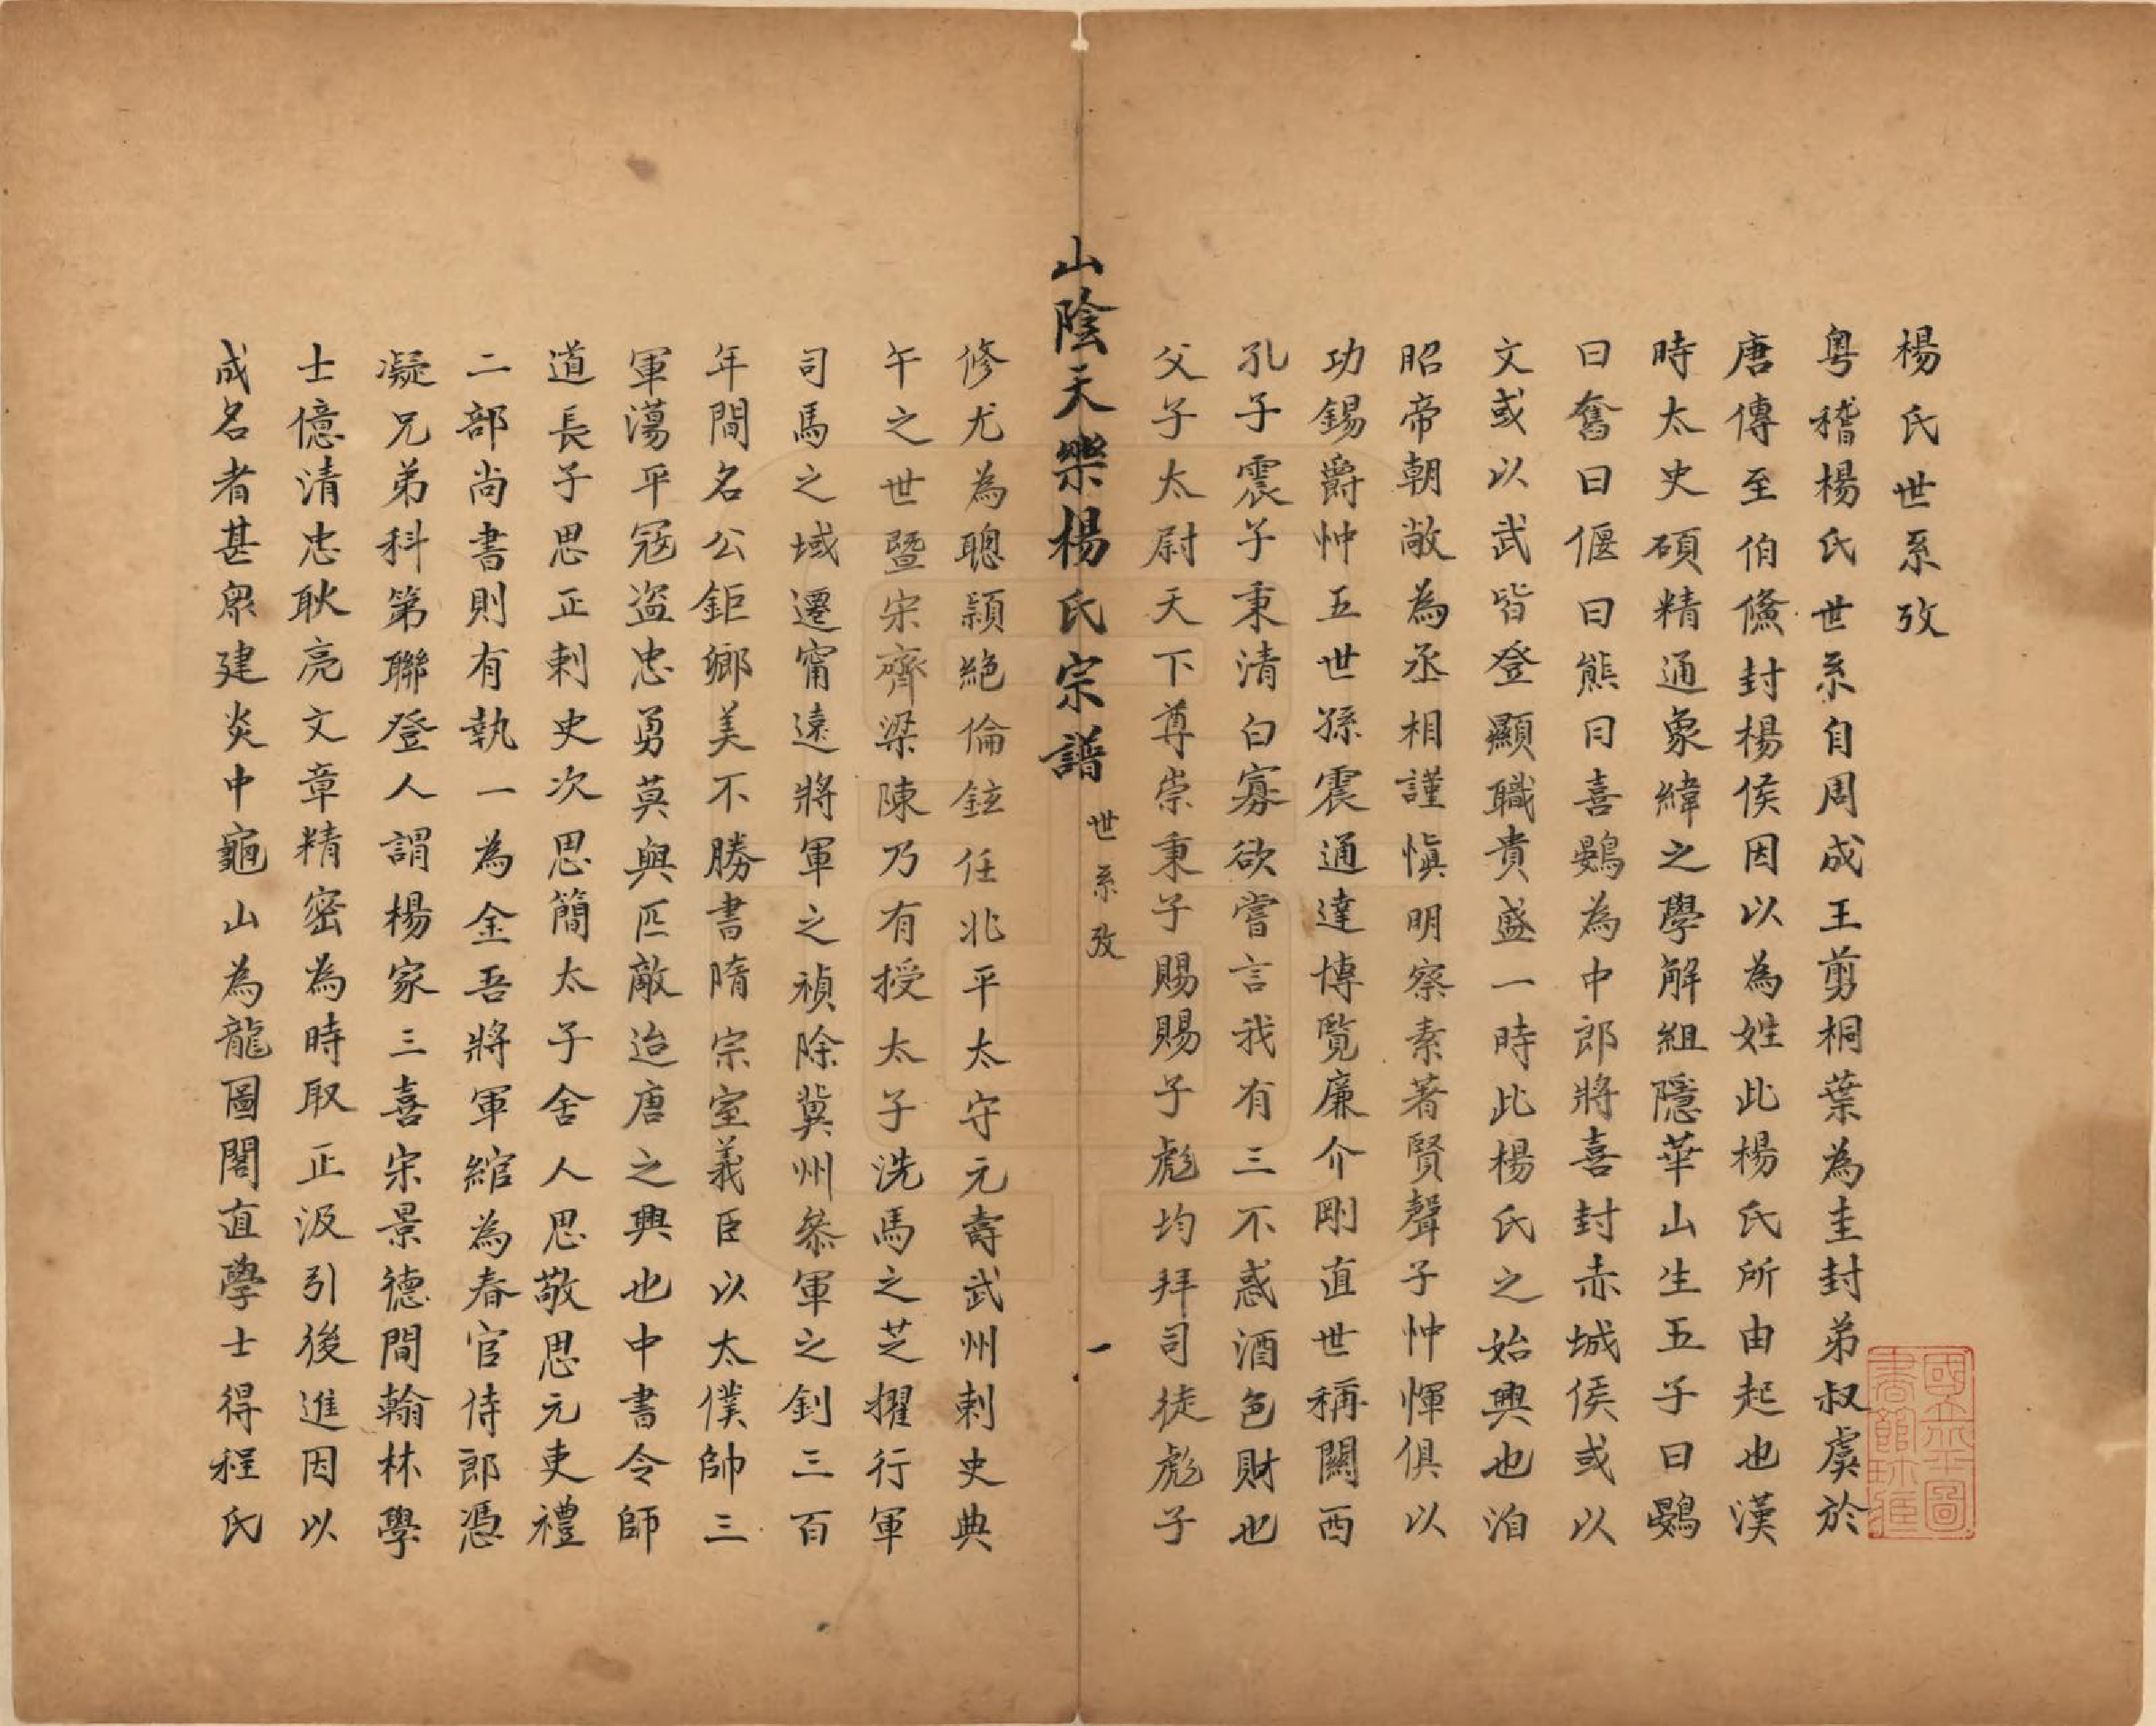 楊氏世系攷
粤稽楊氏世系自周成王剪桐葉為圭封弟叔虞於
唐傳至伯僑封楊侯因以為姓此楊氏所由起也漢
時太史碩精通象緯之學解組隱華山生五子曰鷃
曰奮曰偃曰熊曰喜鷃為中郎將喜封赤城侯或以
文或以武皆登顯職貴盛一時此楊氏之始興也洎
昭帝朝敞為丞相謹慎明察素著賢聲子忡惲俱以
功錫爵忡五世孫震通達博覧廉介剛直世稱關西
孔子震子秉清白寡欲嘗言我有三不惑酒色財也
父子太尉天下尊崇秉子賜賜子彪均拜司徒彪子
山陰天樂楊氏宗譜
世系攷
一
修尤為聰穎絕倫鉉任北平太守元壽武州刺史典
午之世暨宋齊梁陳乃有授太子洗馬之芝擢行軍
司馬之域遷甯遠將軍之禎除冀州叅軍之釗三百
年間名公鉅鄉美不勝書隋宗室義臣以太僕帥三
軍蕩平冦盜忠勇莫與匹敵迨唐之興也中書令師
道長子思正刺史次思簡太子舍人思敬思元吏禮
二部尚書則有執一為金吾將軍綰為春官侍郎憑
凝兄弟科第聯登人謂楊家三喜宋景德間翰林學
士億清忠耿亮文章精密為時取正汲引後進因以
成名者甚衆建炎中龜山為龍圖閣直學士得程氏
國立北平圖
書館珍藏